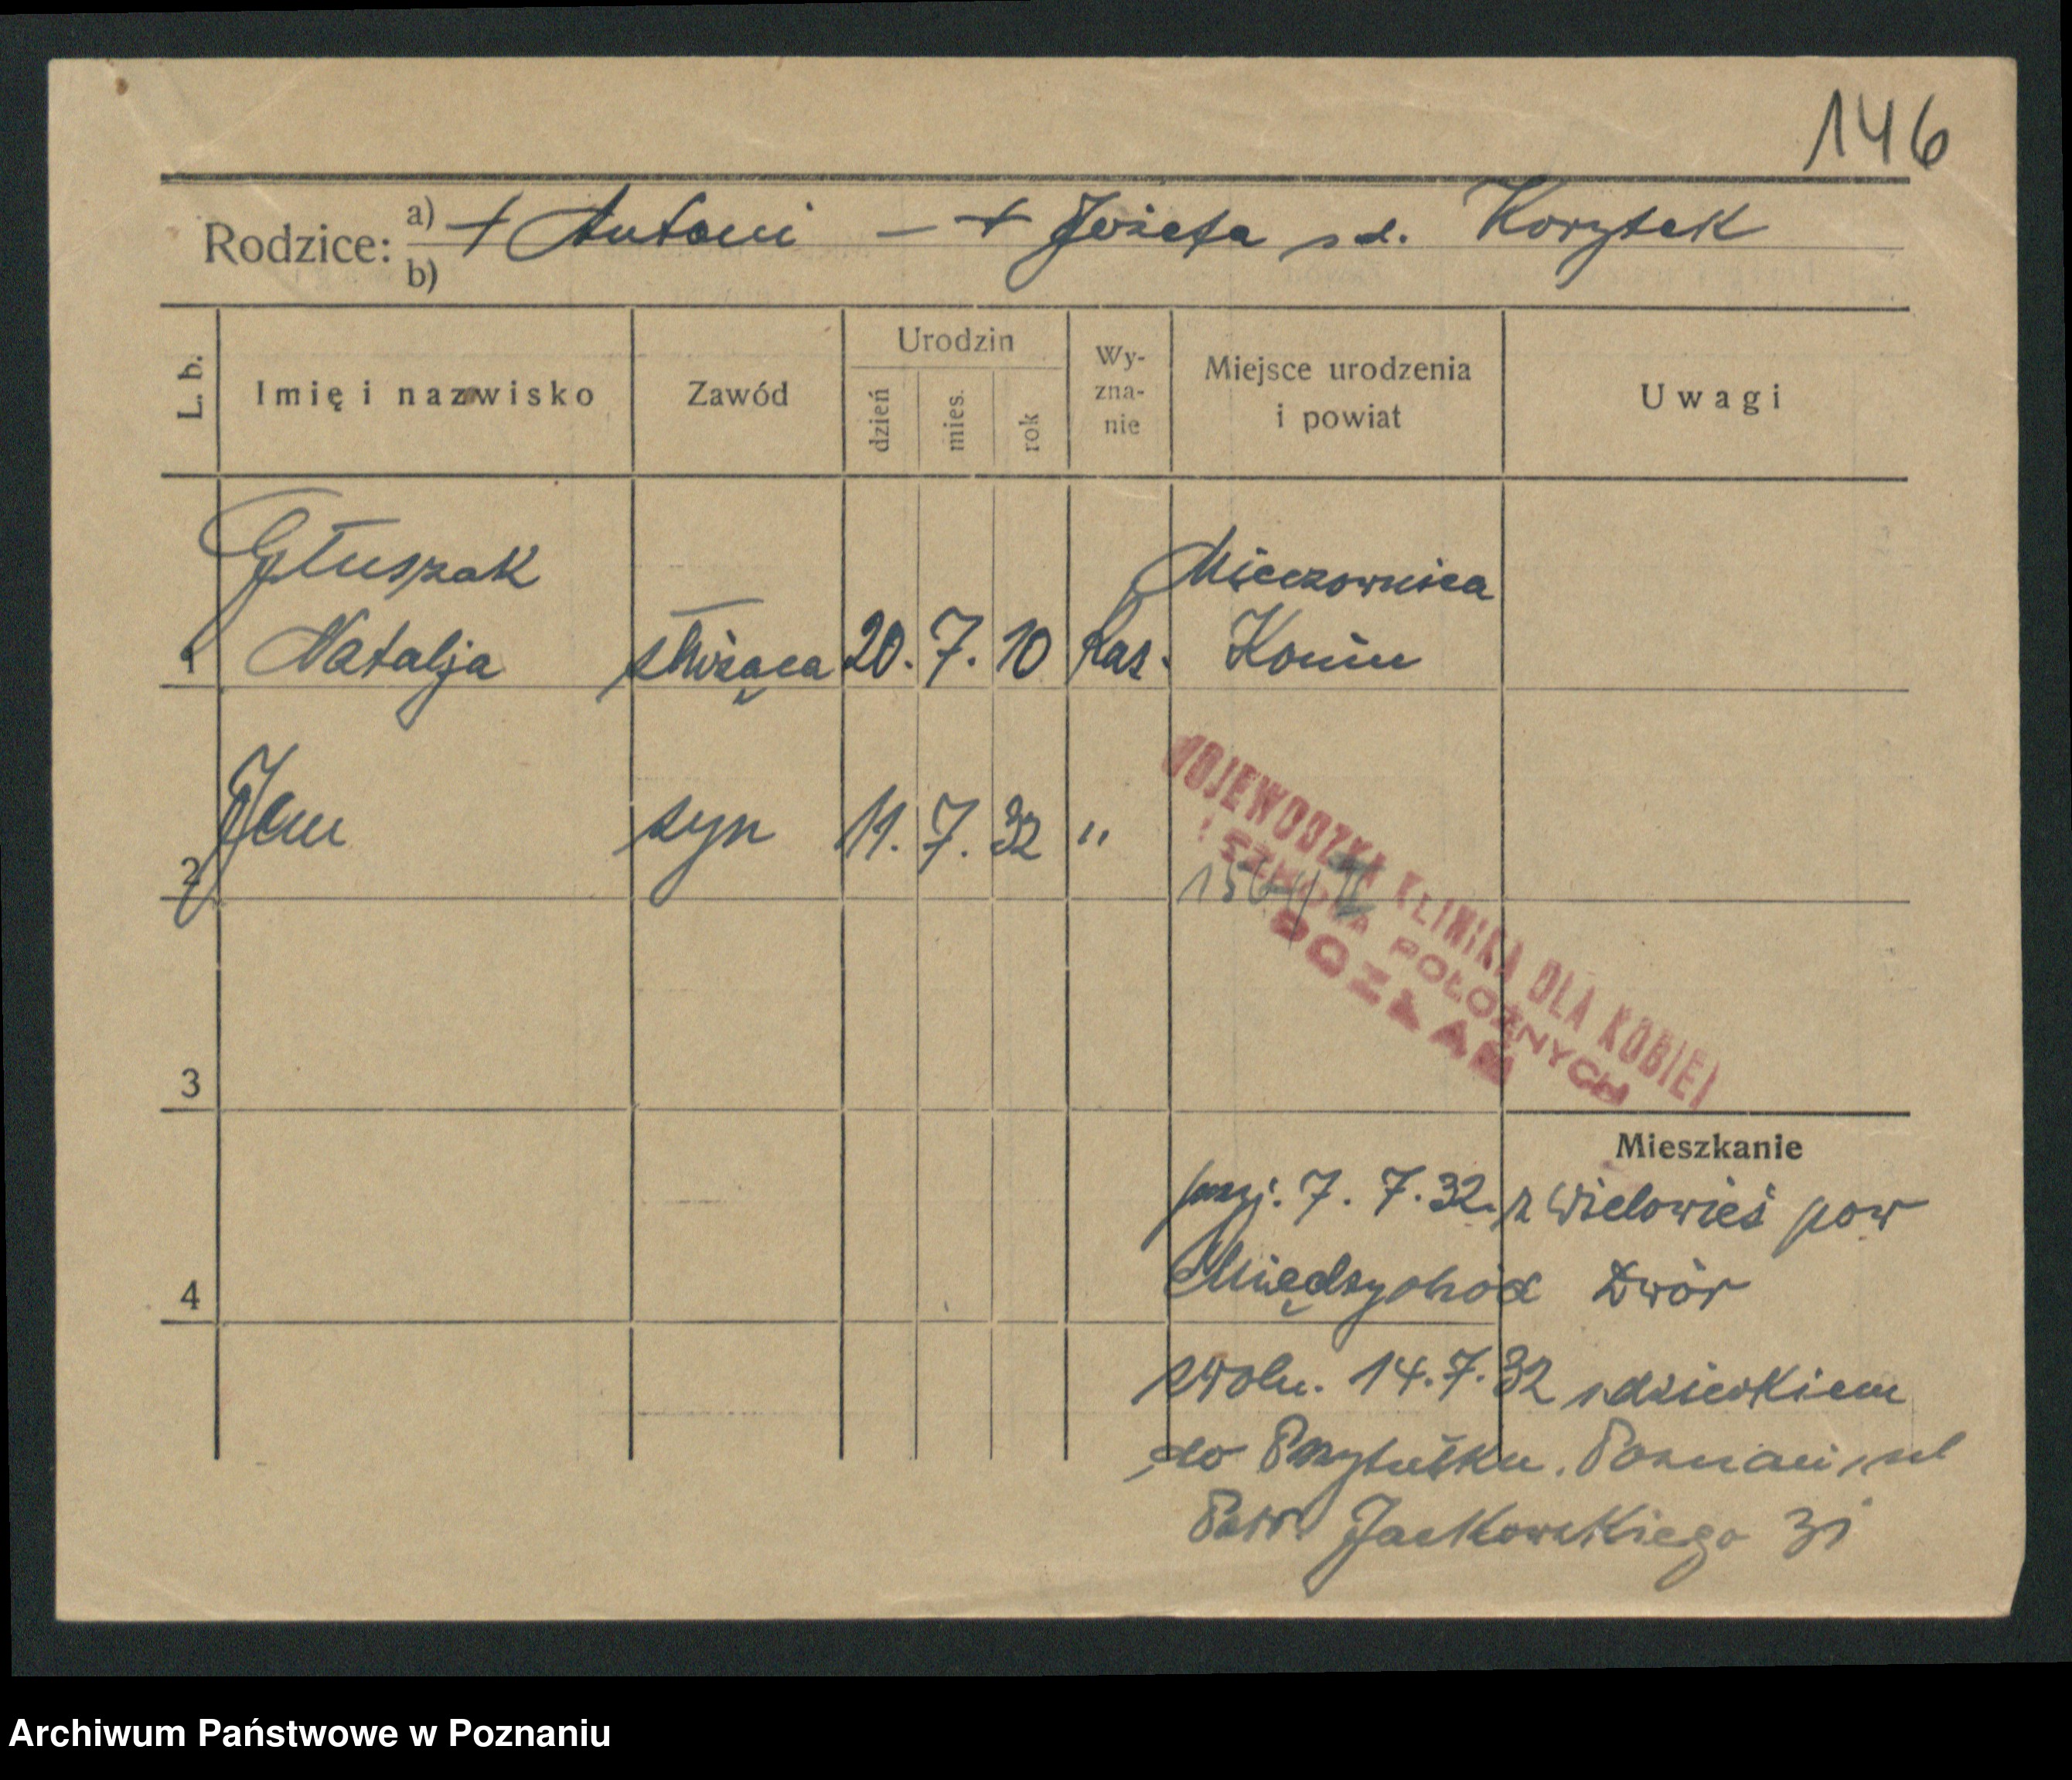 146
Rodzice: a) + Antoni – + Józefa zd. Korytek
b)
L. b. Imię i nazwisko Zawód Urodzin dzień mies. rok Wy-zna-nie Miejsce urodzenia i powiat Uwagi
Głuszak Mieczownica
1 Natalja służąca 20. 7. 10 kat. Konin
2 Jan syn 11. 7. 32 "
WOJEWÓDZKA KLINIKA DLA KOBIET
I SZKOŁA POŁOŻNYCH
POZNAŃ
3
Mieszkanie
przj. 7. 7. 32. z Wielowieś pow
4 Międzychód Dwór
zwoln. 14. 7. 32 z dzieckiem
do Przytułku. Poznań, ul
Patr. Jackowskiego 31
Archiwum Państwowe w Poznaniu